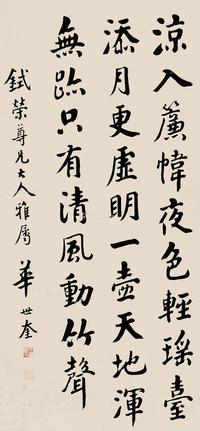 涼入簾幃夜色輕瑤臺
添月更虛明一壺天地渾
無跡只有清風動竹聲
鉽榮尊兄大人雅屬
華世奎